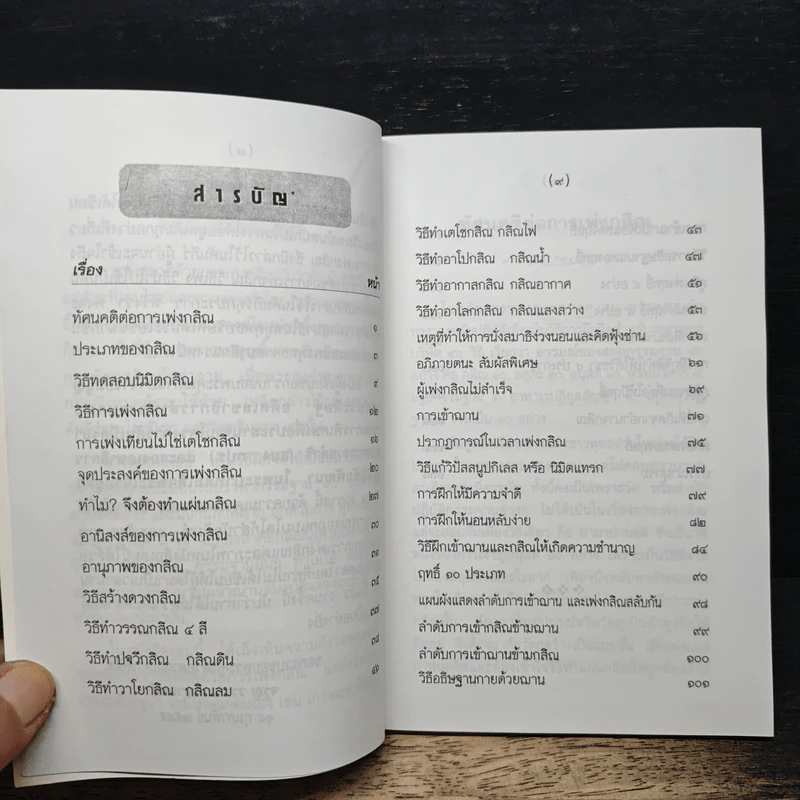 (๘)
สารบัญ
เรื่อง
หน้า
ทัศนคติต่อการเพ่งกสิณ ๑
ประเภทของกสิณ ๓
วิธีทดสอบนิมิตกสิณ ๙
วิธีการเพ่งกสิณ ๑๒
การเพ่งเทียนไม่ใช่เตโชกสิณ ๑๖
จุดประสงค์ของการเพ่งกสิณ ๒๐
ทำไม? จึงต้องทำแผ่นกสิณ ๒๗
อานิสงส์ของการเพ่งกสิณ ๓๐
อานุภาพของกสิณ ๓๑
วิธีสร้างดวงกสิณ ๓๕
วิธีทำวรรณกสิณ ๔ สี ๓๗
วิธีทำปจวีกสิณ กสิณดิน ๓๘
วิธีทำวาโยกสิณ กสิณลม ๔๑
(๙)
วิธีทำเตโชกสิณ กสิณไฟ ๔๓
วิธีทำอาโปกสิณ กสิณน้ำ ๔๗
วิธีทำอากาสกสิณ กสิณอากาศ ๕๑
วิธีทำอาโลกกสิณ กสิณแสงสว่าง ๕๓
เหตุที่ทำให้การนั่งสมาธิง่วงนอนและคิดฟุ้งซ่าน ๕๖
อภิภายตนะ สัมผัสพิเศษ ๖๑
ผู้เพ่งกสิณไม่สำเร็จ ๖๙
การเข้าฌาน ๗๑
ปรากฏการณ์ในเวลาเพ่งกสิณ ๗๕
วิธีแก้วิปัสสนูปกิเลส หรือ นิมิตแทรก ๗๗
การฝึกให้มีความจำดี ๗๙
การฝึกให้นอนหลับง่าย ๘๒
วิธีฝึกเข้าฌานและกสิณให้เกิดความชำนาญ ๘๔
ฤทธิ์ ๑๐ ประเภท ๙๐
แผนผังแสดงลำดับการเข้าฌาน และเพ่งกสิณสลับกัน ๙๘
ลำดับการเข้ากสิณข้ามฌาน ๙๙
ลำดับการเข้าฌานข้ามกสิณ ๑๐๐
วิธีอธิษฐานกายด้วยฌาน ๑๐๑